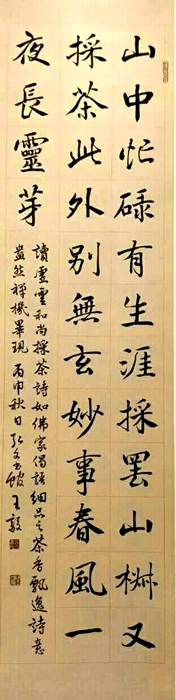 山中忙碌有生涯採罷山樹又
採茶此外别無玄妙事春風一
夜長靈芽
讀虛雲和尚採茶詩如佛家偈語細品之茶香飄逸詩意
盎然禪機畢現丙申秋日弘文館王毅